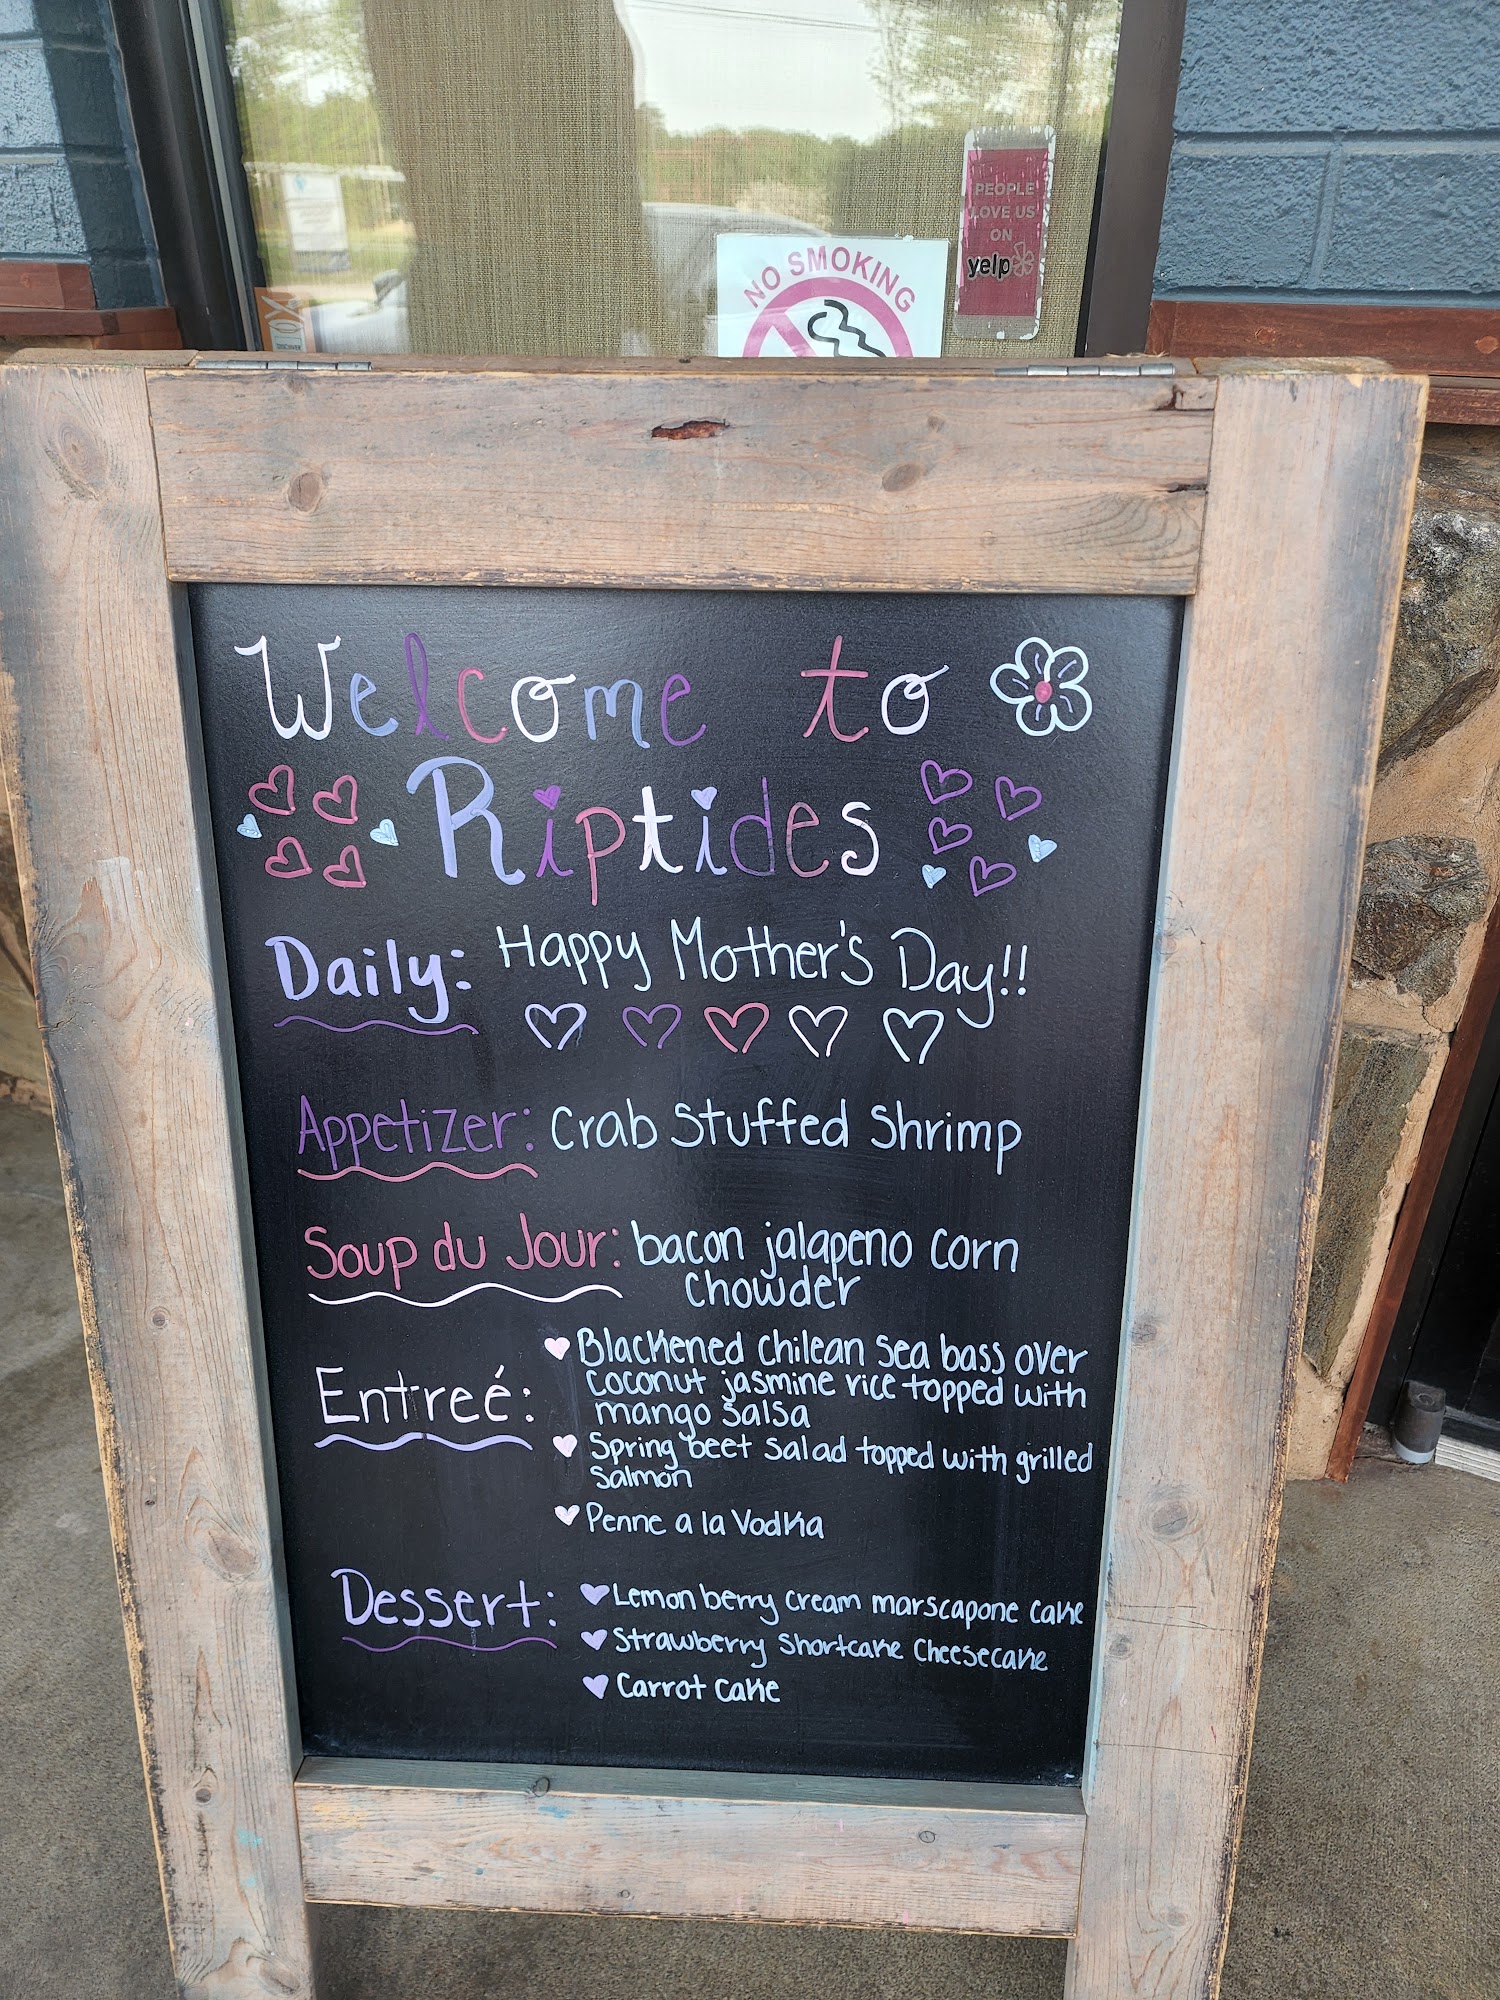 PEOPLE
LOVE US
ON
yelp
NO SMOKING
DISCOVER
Welcome to
Riptides
Daily: Happy Mother's Day!!
Appetizer: Crab Stuffed Shrimp
Soup du Jour: bacon jalapeno corn
Chowder
Entreé:
Blackened chilean sea bass over
coconut jasmine rice topped with
mango salsa
Spring beet salad topped with grilled
salmon
Penne a la Vodka
Dessert:
Lemon berry cream marscapone cake
Strawberry Shortcake Cheesecake
Carrot Cake